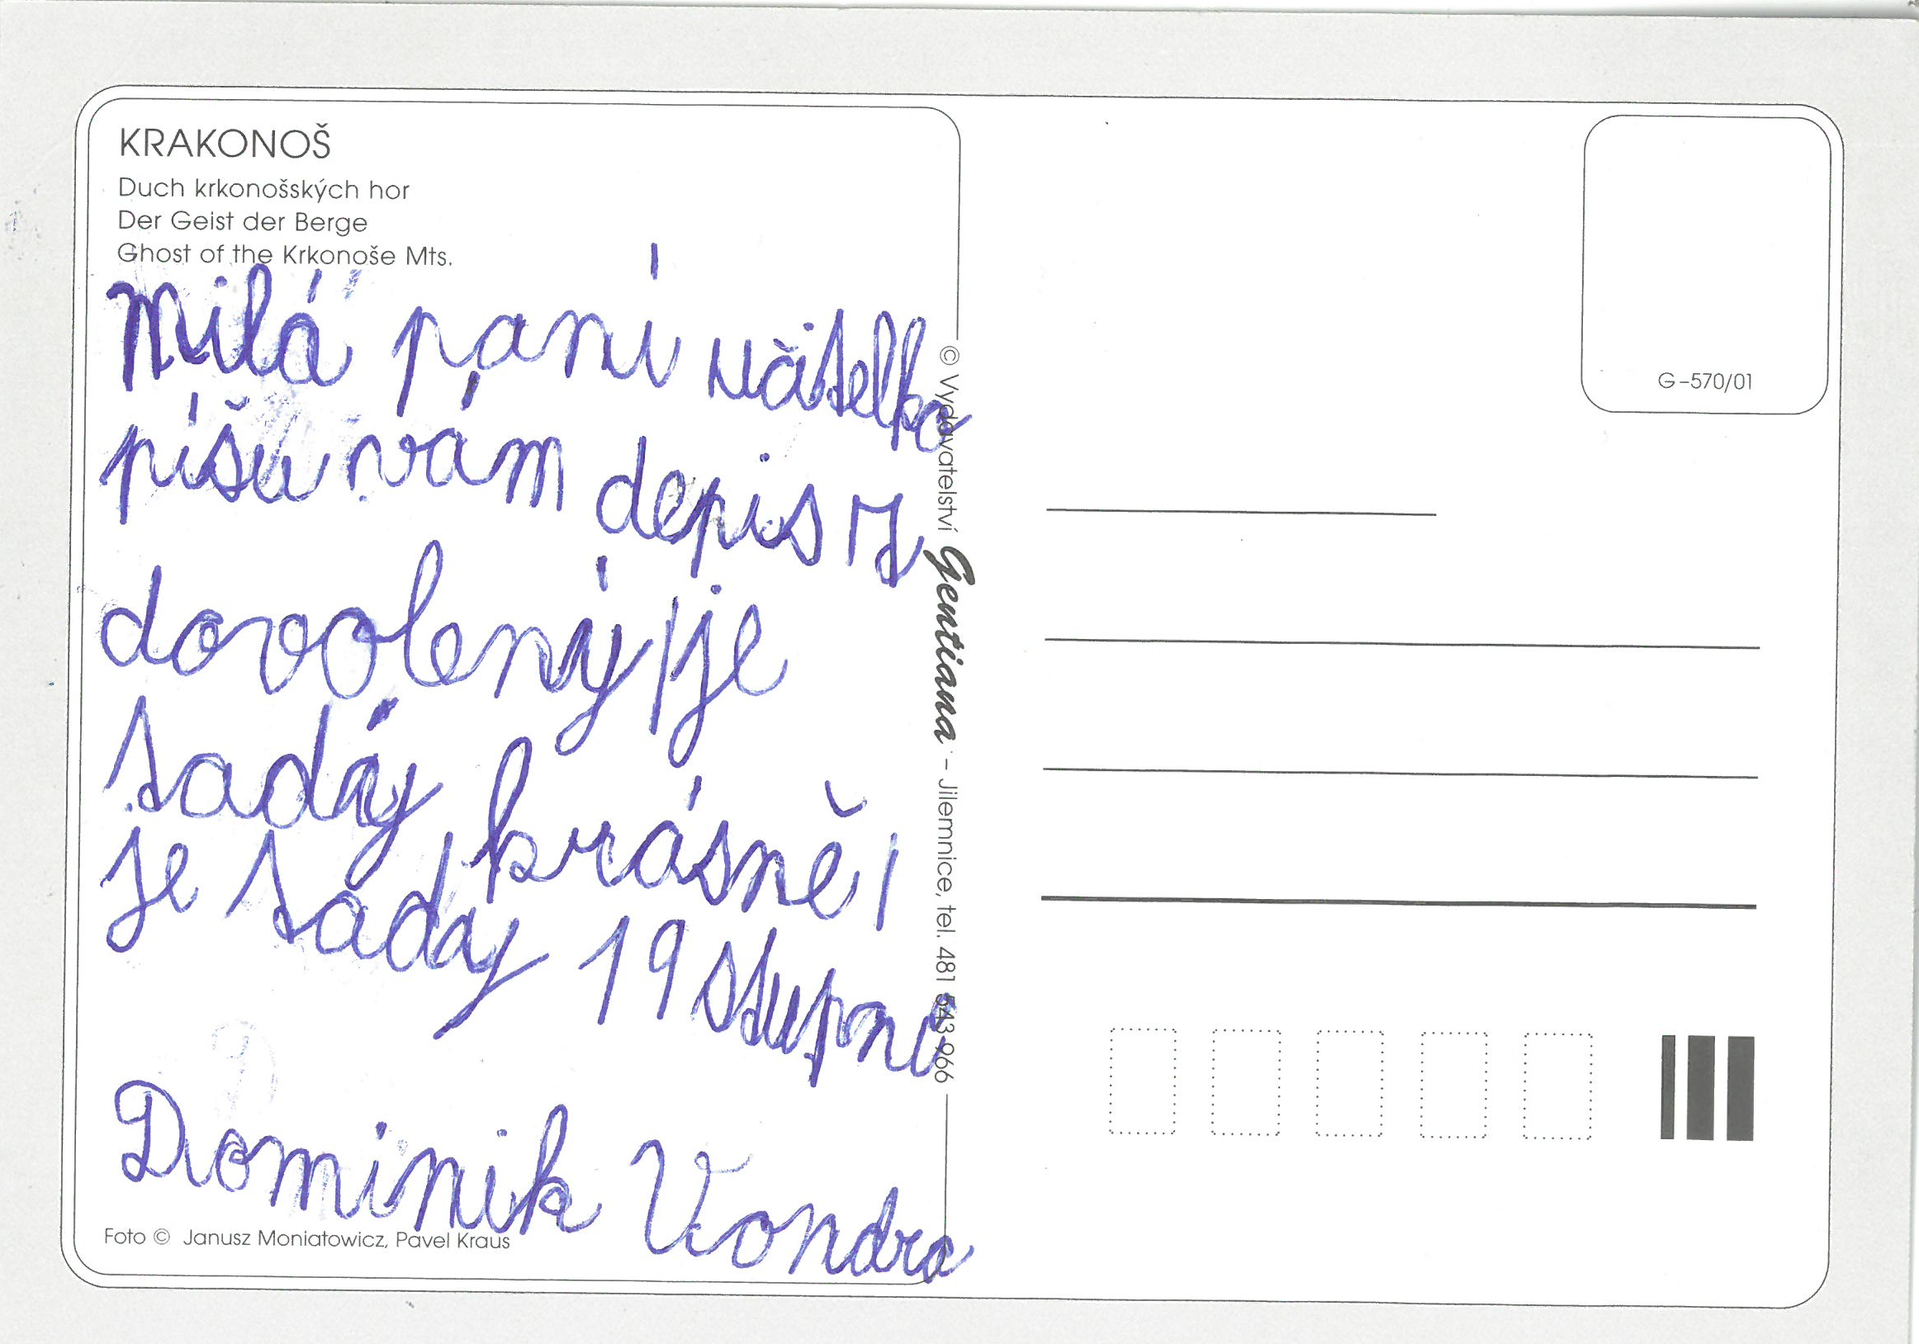 KRAKONOŠ
Duch krkonošských hor
Der Geist der Berge
Ghost of the Krkonoše Mts.
Milá paní učitelko
píšu vám dopis z
dovolený je
tady krásně
je tady 19 stupnů
Dominik Vondra
Foto © Janusz Moniatowicz, Pavel Kraus
© Vydavatelství Gentiana - Jilemnice, tel. 481 543 966
G-570/01